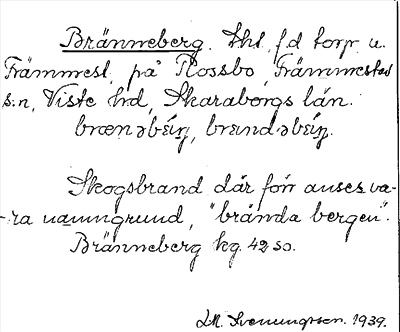 Bränneberg. Lht, f.d. torp u.
Främmest. på Flossbo, Främmestad
s:n, Viste hrd, Skaraborgs län.
brænəbέi̯ŋ, brændəbέi̯ŋ.
Skogsbrand där förr anses va-
-ra namngrund, "brända bergen".
Bränneberg kg. 42 SO.
1939.